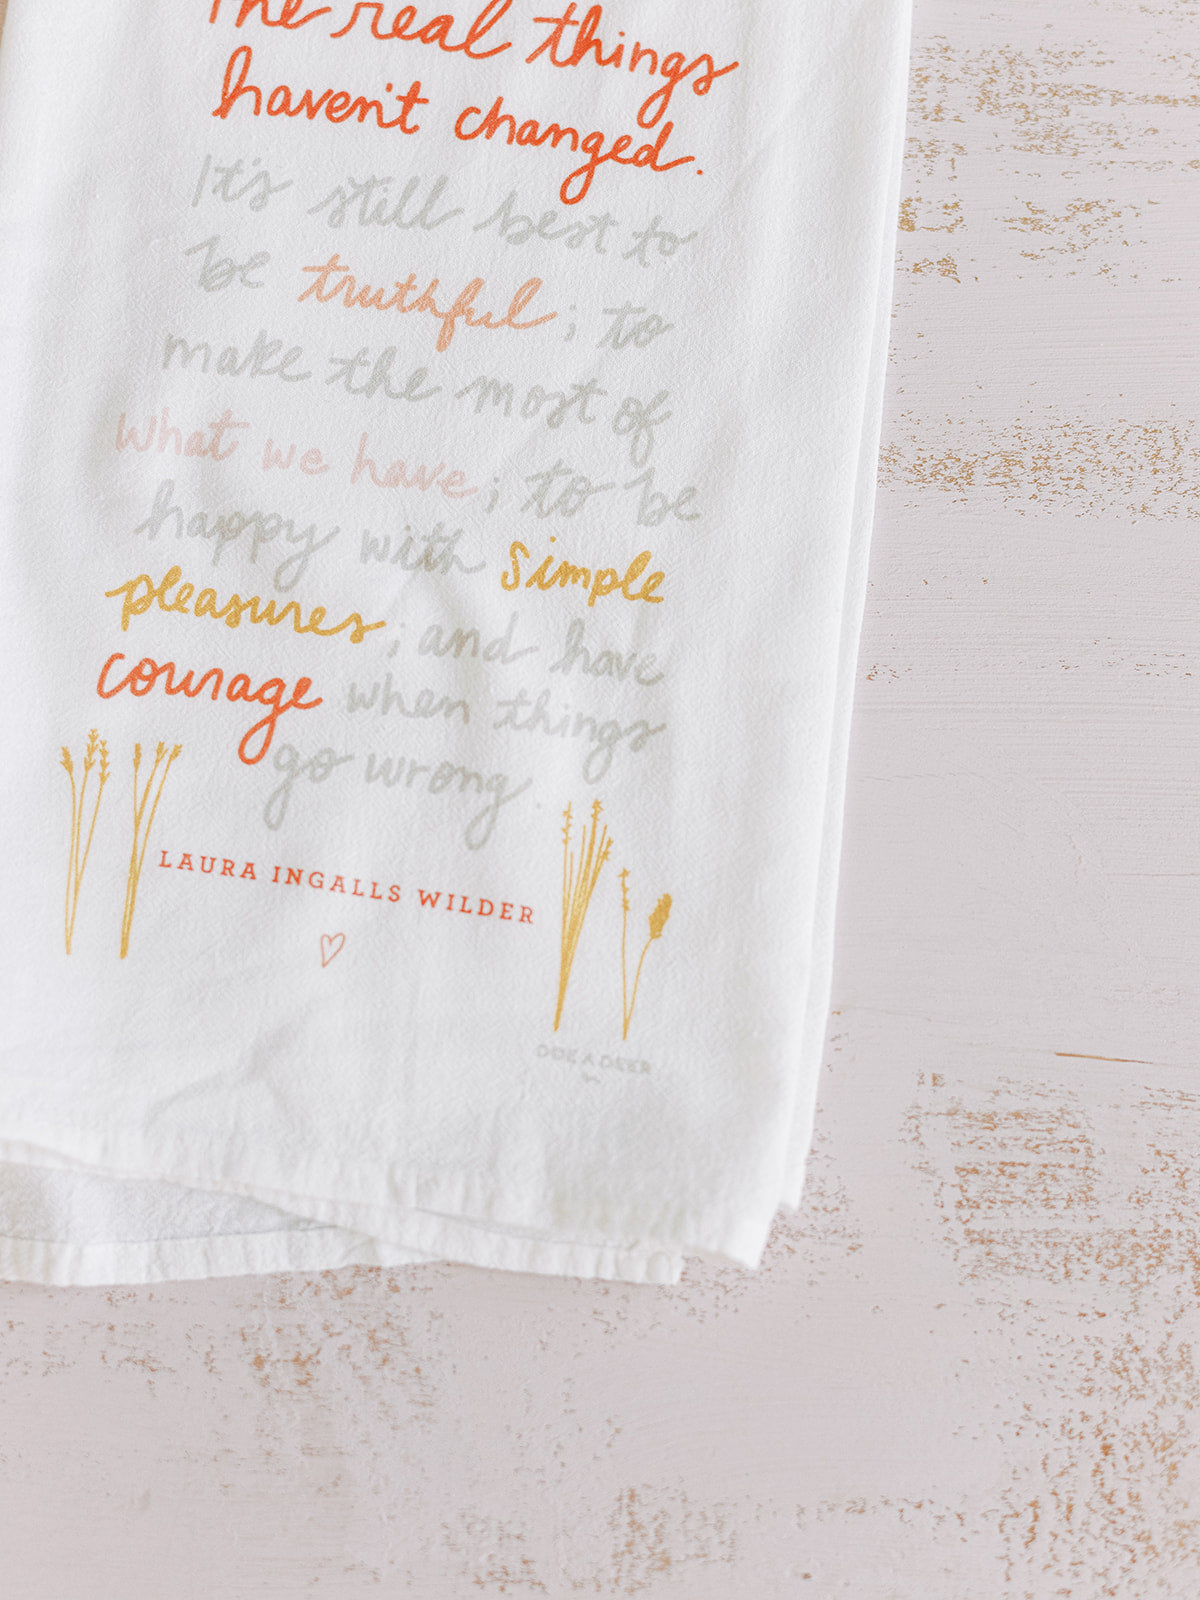 The real things
haven't changed.
It's still best to
be truthful; to
make the most of
what we have; to be
happy with simple
pleasures; and have
courage when things
go wrong.
LAURA INGALLS WILDER
DOE A DEER